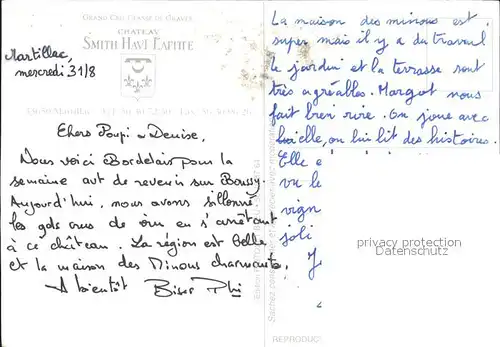 GRAND CRU CLASSÉ DE GRAVES
CHATEAU
SMITH HAUT LAFITTE
Martillac,
mercredi 31/8
Chers Poupi et Denise,
Nous voici Bordelais pour la
semaine avt de revenir sur Boussy.
Aujourd'hui, nous avons sillonné
les gds crus de vin en s'arrêtant
à ce château. La région est belle
et la maison des Minous charmante.
A bientôt Bises Phi
La maison des minous est
super mais il y a du travail
le jardin et la terrasse sont
très agréables. Margot nous
fait bien rire. On joue avec
elle, on lui lit des histoires.
Elle e
vu le
vign
joli
J
privacy protection
Datenschutz
REPRODUC